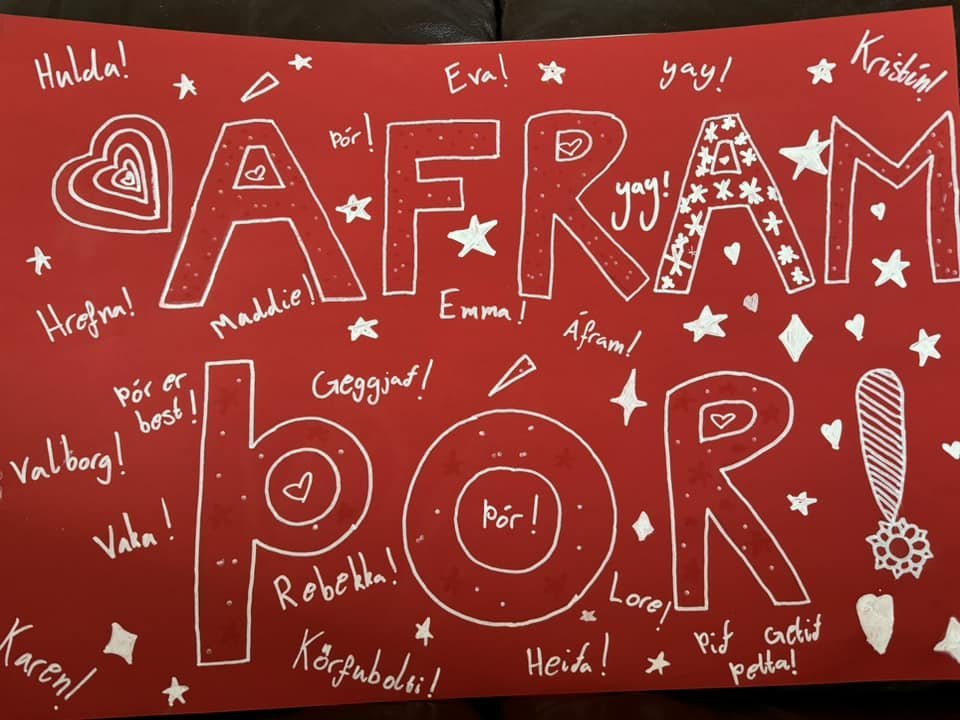 Hulda!
Eva!
yay!
Kristín!
Þór!
ÁFRAM
yay!
Hrefna!
Maddie!
Emma!
Áfram!
Þór er
best!
Geggjað!
ÞÓR!
Þór!
Valborg!
Vaka!
Rebekka!
Lore!
Karen!
Körfubolti!
Heiða!
Þið Getið
þetta!